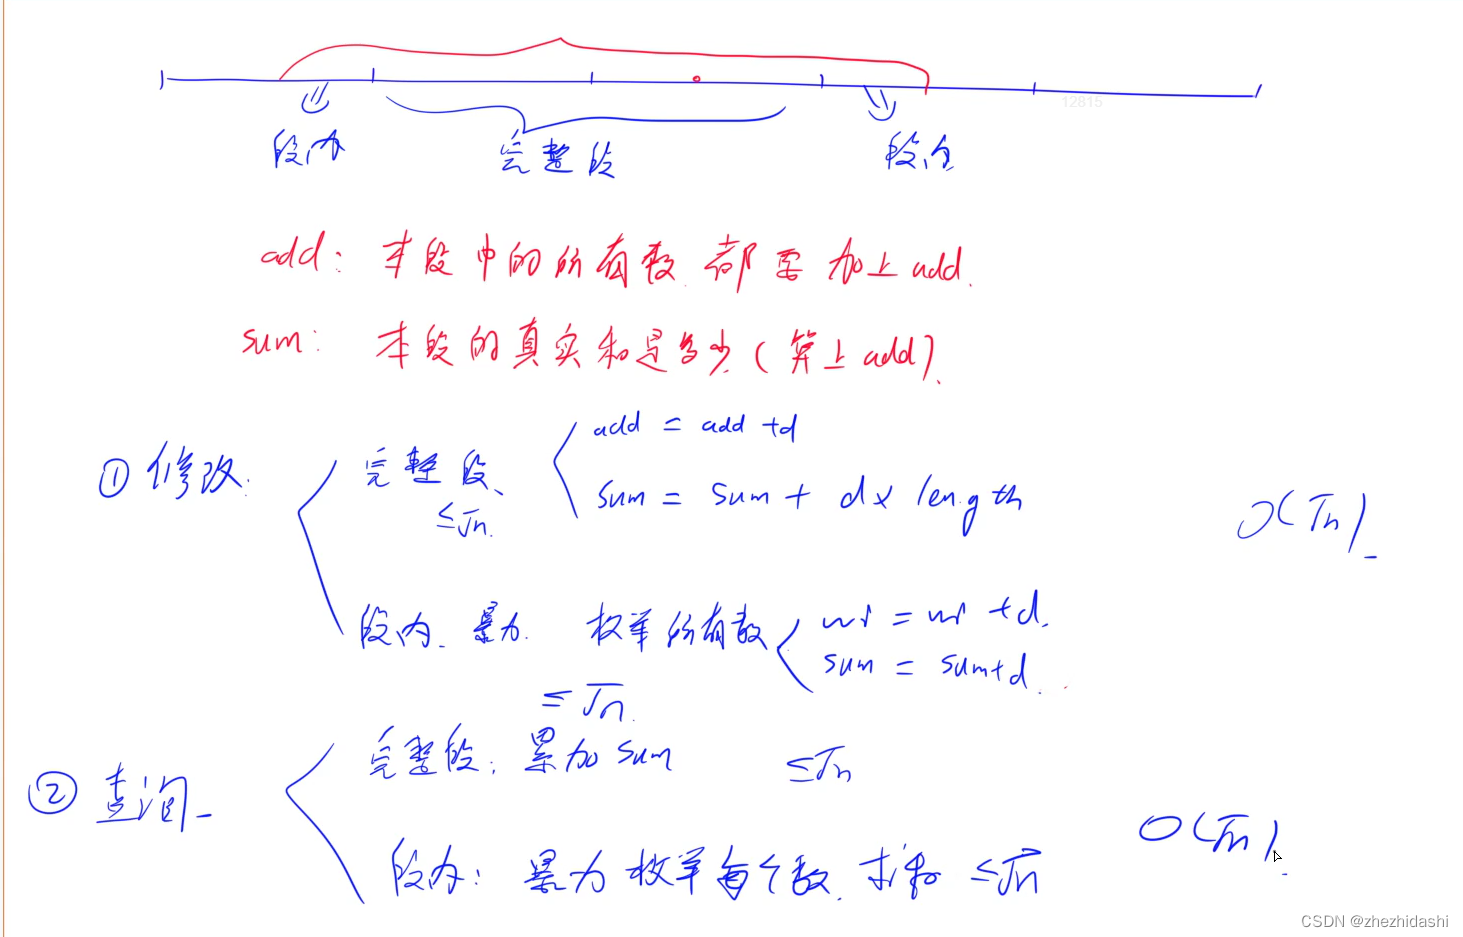 12815
段内 完整段 段内
add: 本段中的所有数 都要加上add.
sum: 本段的真实和是多少(算上add).
add = add +d
① 修改. 完整段、
sum = sum + d× length
≤√n.
O(√n)
段内. 暴力. 枚举所有数
wi = wi +d.
sum = sum+d.
≤√n.
完整段: 累加 sum ≤√n
② 查询
O(√n).
段内: 暴力枚举每个数. 求和 ≤√n
CSDN @zhezhidashi